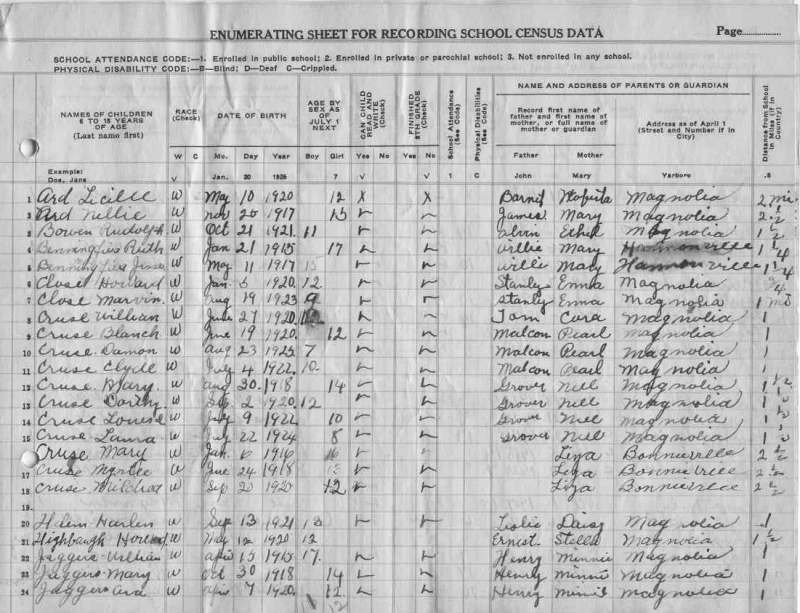 ENUMERATING SHEET FOR RECORDING SCHOOL CENSUS DATA Page
SCHOOL ATTENDANCE CODE:—1. Enrolled in public school; 2. Enrolled in private or parochial school; 3. Not enrolled in any school.
PHYSICAL DISABILITY CODE:—B—Blind; D—Deaf C—Crippled.
NAMES OF CHILDREN 6 to 18 YEARS OF AGE (Last name first)
RACE (Check)
DATE OF BIRTH
AGE BY SEX AS OF JULY 1 NEXT
CAN CHILD READ AND WRITE (Check)
FINISHED 8TH GRADE (Check)
School Attendance (See Code)
Physical Disabilities (See Code)
NAME AND ADDRESS OF PARENTS OR GUARDIAN
Record first name of father and first name of mother, or full name of mother or guardian
Address as of April 1 (Street and Number if in City)
Distance from School in Miles (if in Country)
W C Mo. Day Year Boy Girl Yes No Yes No Father Mother
Example: Doe, Jane V Jan. 20 1926 7 V V 1 C John Mary Yarboro .8
1 Ard Lucille W May 10 1920 12 X X Magnolia 2 mi
2 Ard Nellie W Nov 20 1917 James Mary Magnolia 2 1/2
3 Bowen Rudolph W Oct 21 1921 11 Alvin Ethel Magnolia 1 1/2
4 Ruth W Jan 21 1915 17 Willie Mary 1 1/4
5 W May 11 1917 15 Willie Mary 1 1/4
6 Close Howard W Jan 6 1920 12 Stanly Emma Magnolia
7 Close Marvin W Aug 19 1923 9 Stanley Emma Magnolia 1 mi
8 Cruse William W June 27 1920 Tom Cora Magnolia 1
9 Cruse Blanch W June 19 1920 12 Malcon Pearl Magnolia 1
10 Cruse Damon W Aug 23 1925 7 Malcon Pearl Magnolia 1
11 Cruse Clyde W July 4 1922 10 Malcon Pearl Magnolia 1
12 Cruse Mary W Aug 30 1918 14 Grover Nell Magnolia 1 1/2
13 Cruse W 2 1920 12 Grover Nell Magnolia 1
14 Cruse Louise W July 9 1922 10 Grover Nell Magnolia 1
15 Cruse Laura W July 22 1924 8 Grover Nell Magnolia 1
16 Cruse Mary W Jan 6 1916 16 Liza Bonnieville 2 1/2
17 Cruse Myrtle W June 24 1918 Liza Bonnieville 2 1/2
18 Cruse Mildred W Sep 20 1920 12 Liza Bonnieville 2 1/2
19
20 Helm Harlen W Sep 13 1921 Leslie Daisy Magnolia 1
21 Highbaugh Howard W May 12 1920 12 Ernest Stella Magnolia 1 1/2
22 Jaggers William W April 15 1915 17 Henry Minnie Magnolia 1
23 Jaggers Mary W Oct 30 1918 14 Henry Minnie Magnolia 1
24 Jaggers W Apr 7 1920 12 Henry Magnolia 1
12